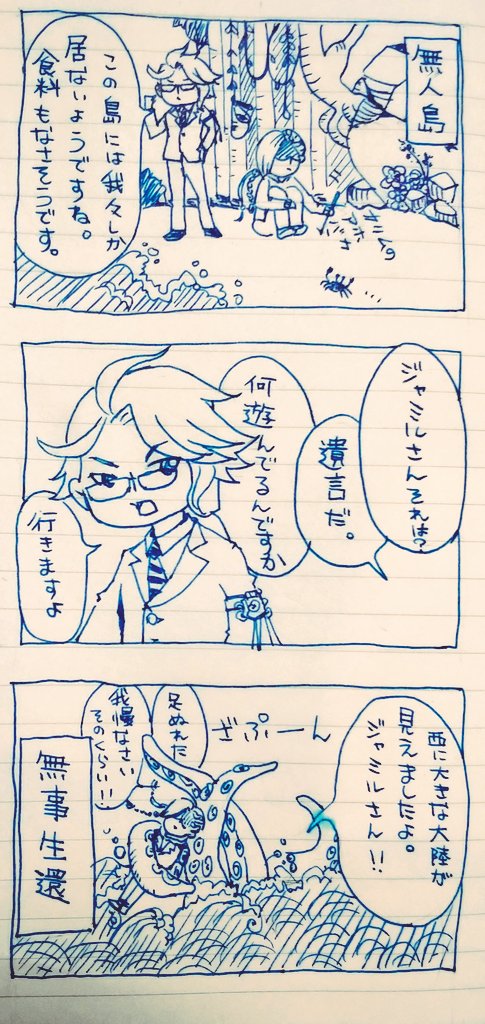 無人島
この島には我々しか
居ないようですね。
食料もなさそうです。
ジャミルさんそれは?
遺言だ。
何遊んでるんですか
行きますよ
西に大きな大陸が
見えましたよ。
ジャミルさん!!
ざぷーん
足ぬれた
我慢なさい
そのくらい!!
無事生還